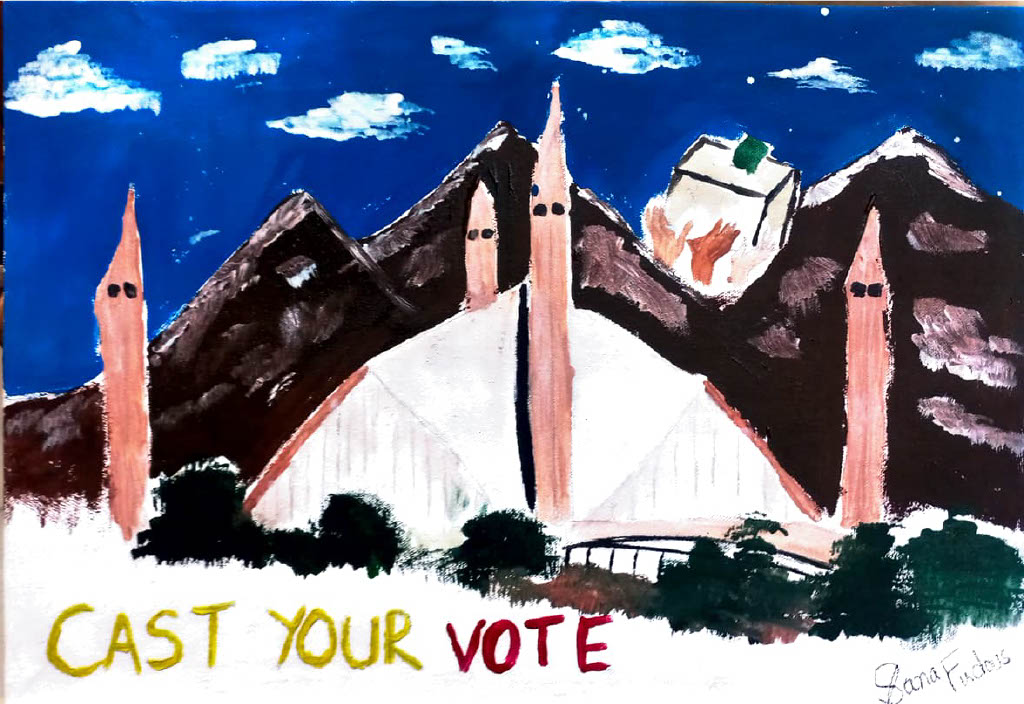 CAST YOUR VOTE
Sana Firdous